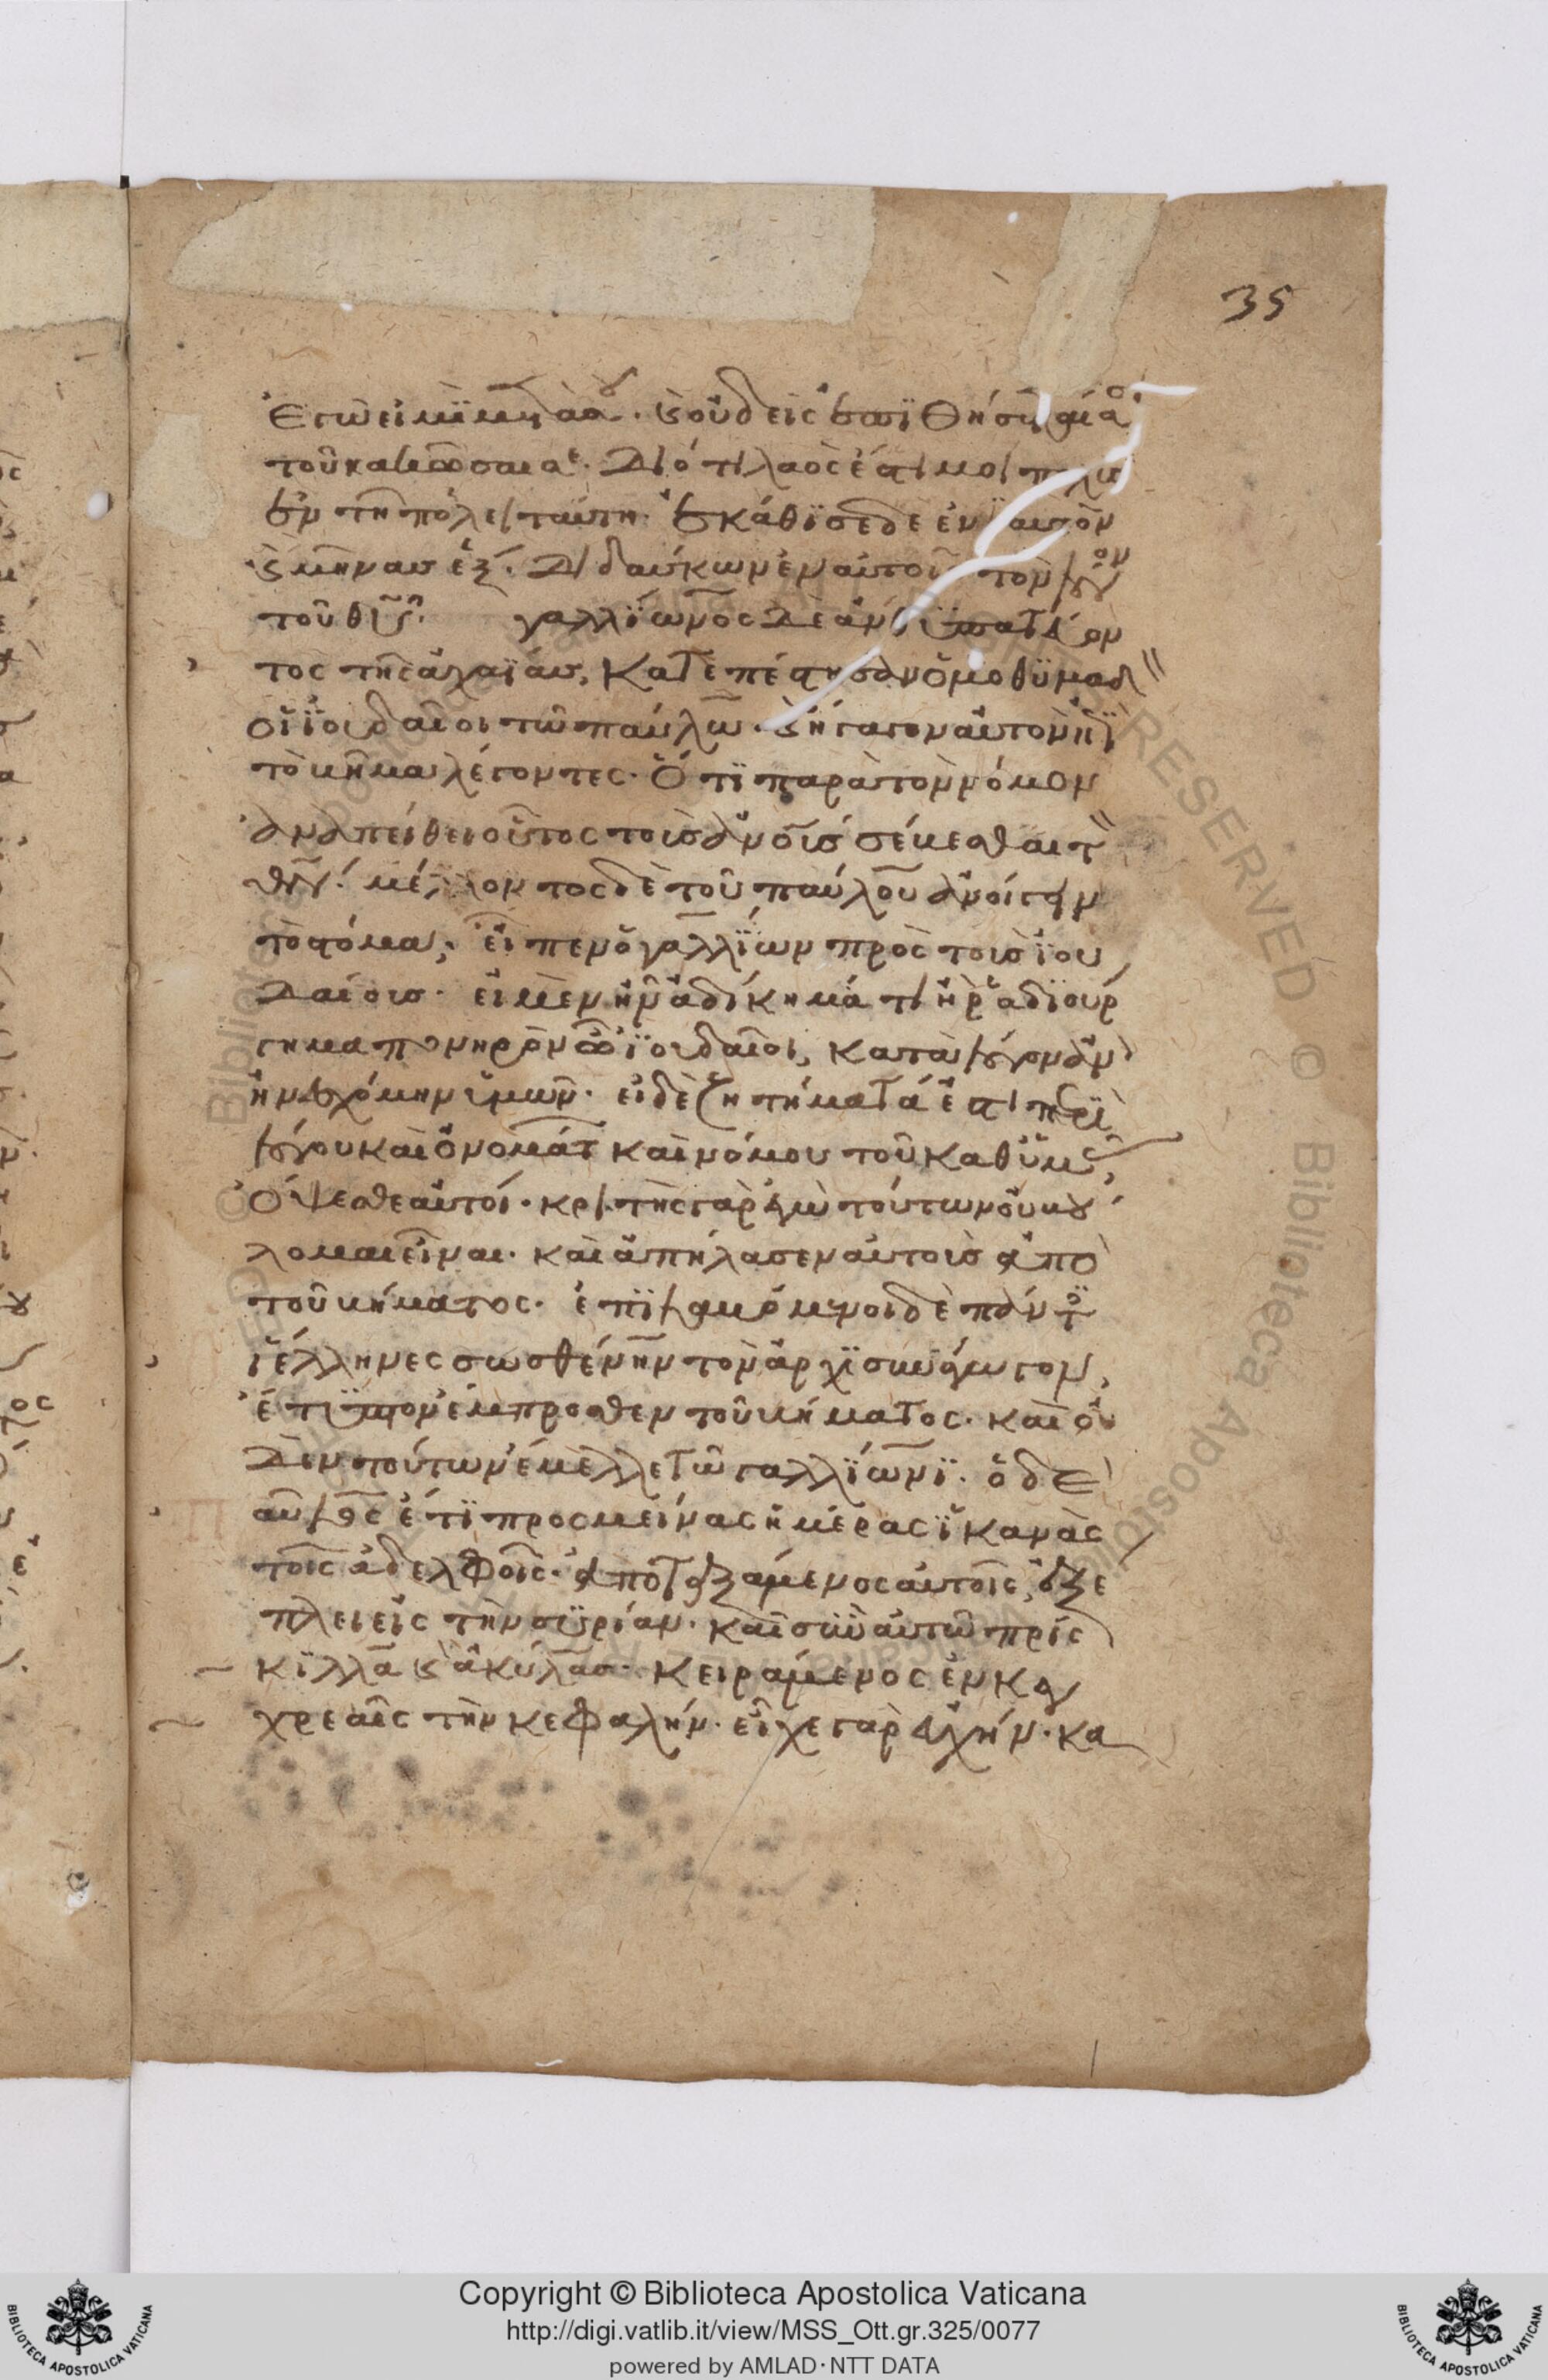 35
Ἐγώ εἰμι μετὰ σοῦ. καὶ οὐδεὶς ἐπιθήσεταί σοι
τοῦ κακῶσαί σε. Διότι λαός ἐστί μοι πολὺς
ἐν τῇ πόλει ταύτῃ. ἐκάθϊσε δὲ ἐνιαυτὸν
καὶ μῆνας ἕξ. Διδάσκων ἐν αὐτοῖς τὸν λόγον
τοῦ θυ. γαλλΐωνος δὲ ἀνθυπατεύον
τος τῆς ἀχαΐας, κατεπέστησαν ὁμοθυμαδ
οἱ ἰουδαῖοι τῶ παύλω. καὶ ἤγαγον αὐτὸν ἐπὶ
τὸ βῆμα λέγοντες. Ὅτι παρὰ τὸν νόμον
ἀναπείθει οὗτος τοὺς ἀνους σέβεσθαι τ
θν. μέλλοντος δὲ τοῦ παύλου ἀνοίγειν
τὸ στόμα, εἶπεν ὁ γαλλΐων πρὸς τοὺς ἰου
δαίους. εἰ μὲν ἦν ἀδίκημά τι ἢ ῥαδιούρ
γημα πονηρὸν ὦ ἰουδαῖοι, κατὰ λόγον ἂν
ἠνεσχόμην ὑμῶν. εἰ δὲ ζητήματά ἐστι περὶ
λόγου καὶ ὀνομάτ καὶ νόμου τοῦ καθ ὑμᾶς,
Ὄψεσθε αὐτοί. κριτὴς γὰρ ἐγὼ τούτων οὐ βού
λομαι εἶναι. καὶ ἀπήλασεν αὐτοὺς ἀπὸ
τοῦ βήματος. ἐπιλαβόμενοι δὲ πάντ
οἱ ἕλληνες σωσθένην τὸν ἀρχισυνάγωγον,
ἔτυπτον ἔμπροσθεν τοῦ βήματος. καὶ οὐ
δὲν τούτων ἔμελλε τῶ γαλλΐωνϊ. ὁ δὲ
παῦλος ἔτι προσμείνας ἡμέρας ἱκανὰς
τοῖς ἀδελφοῖς. ἀποταξάμενος αὐτοῖς, ἐξέ
πλει εἰς τὴν συρίαν. καὶ σὺν αὐτῶ πρίς
κιλλα καὶ ἀκύλας. κειράμενος ἐν κεγ
χρεαῖς τὴν κεφαλήν. εἶχε γὰρ εὐχήν. κα
Copyright © Biblioteca Apostolica Vaticana
http://digi.vatlib.it/view/MSS_Ott.gr.325/0077
powered by AMLAD·NTT DATA